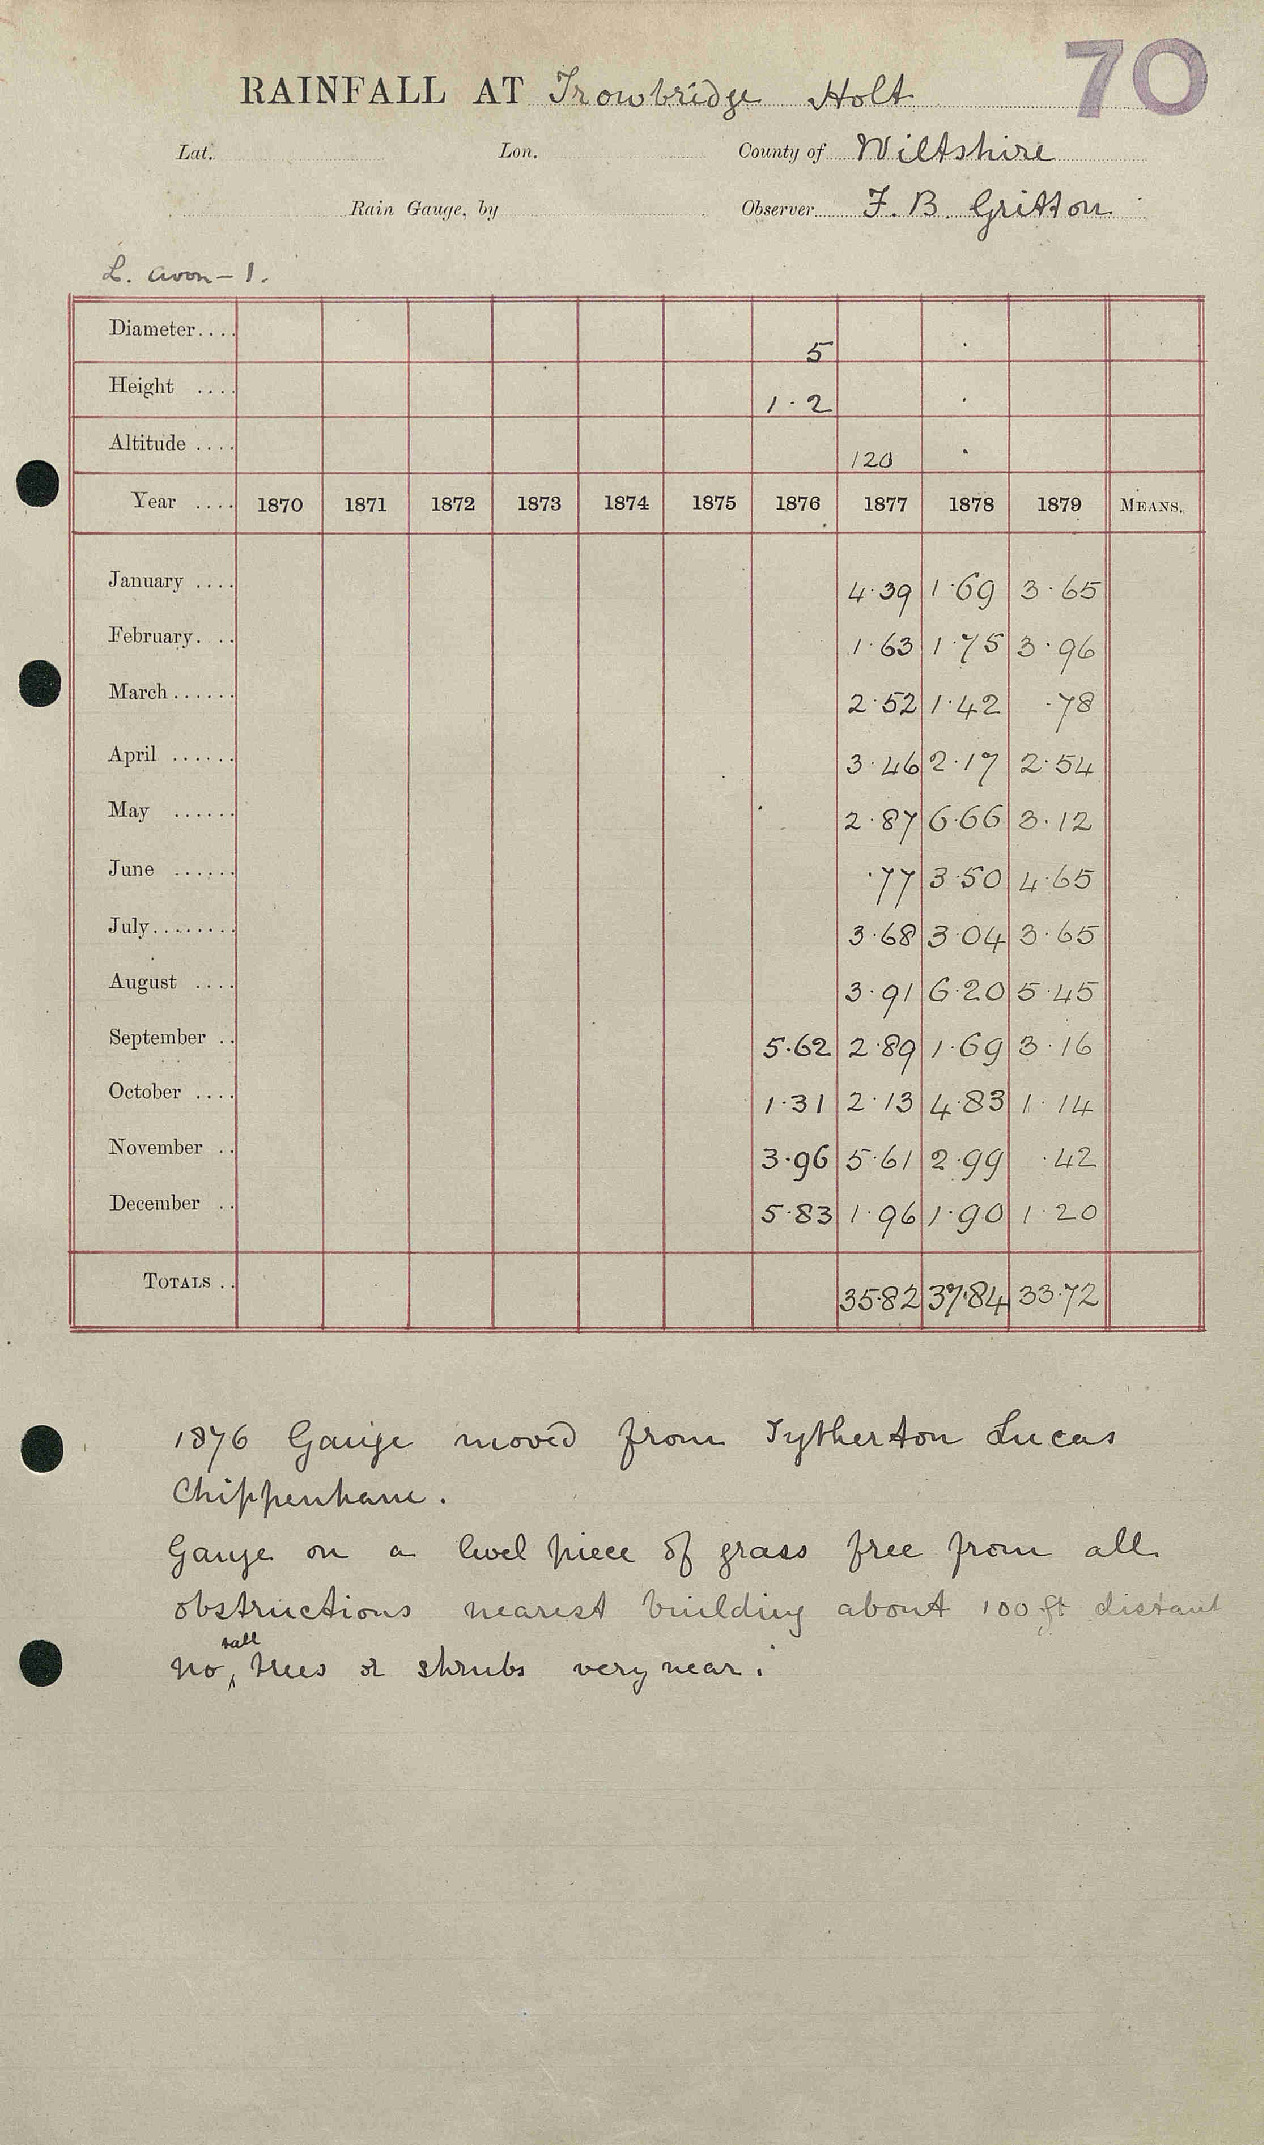 70
RAINFALL AT Trowbridge Holt
Lat. Lon. County of Wiltshire
Rain Gauge, by Observer F. B. Gritton
L. Avon - 1.
Diameter.... 5
Height .... 1.2
Altitude .... 120
Year .... 1870 1871 1872 1873 1874 1875 1876 1877 1878 1879 MEANS.
January .... 4.39 1.69 3.65
February. .. 1.63 1.75 3.96
March...... 2.52 1.42 .78
April ...... 3.46 2.17 2.54
May ...... 2.87 6.66 3.12
June ...... .77 3.50 4.65
July........ 3.68 3.04 3.65
August .... 3.91 6.20 5.45
September .. 5.62 2.89 1.69 3.16
October .... 1.31 2.13 4.83 1.14
November .. 3.96 5.61 2.99 .42
December .. 5.83 1.96 1.90 1.20
TOTALS .. 35.82 37.84 33.72
1876 Gauge moved from Tytherton Lucas
Chippenham.
Gauge on a level piece of grass free from all
obstructions nearest building about 100 ft distant
no tall trees or shrubs very near.